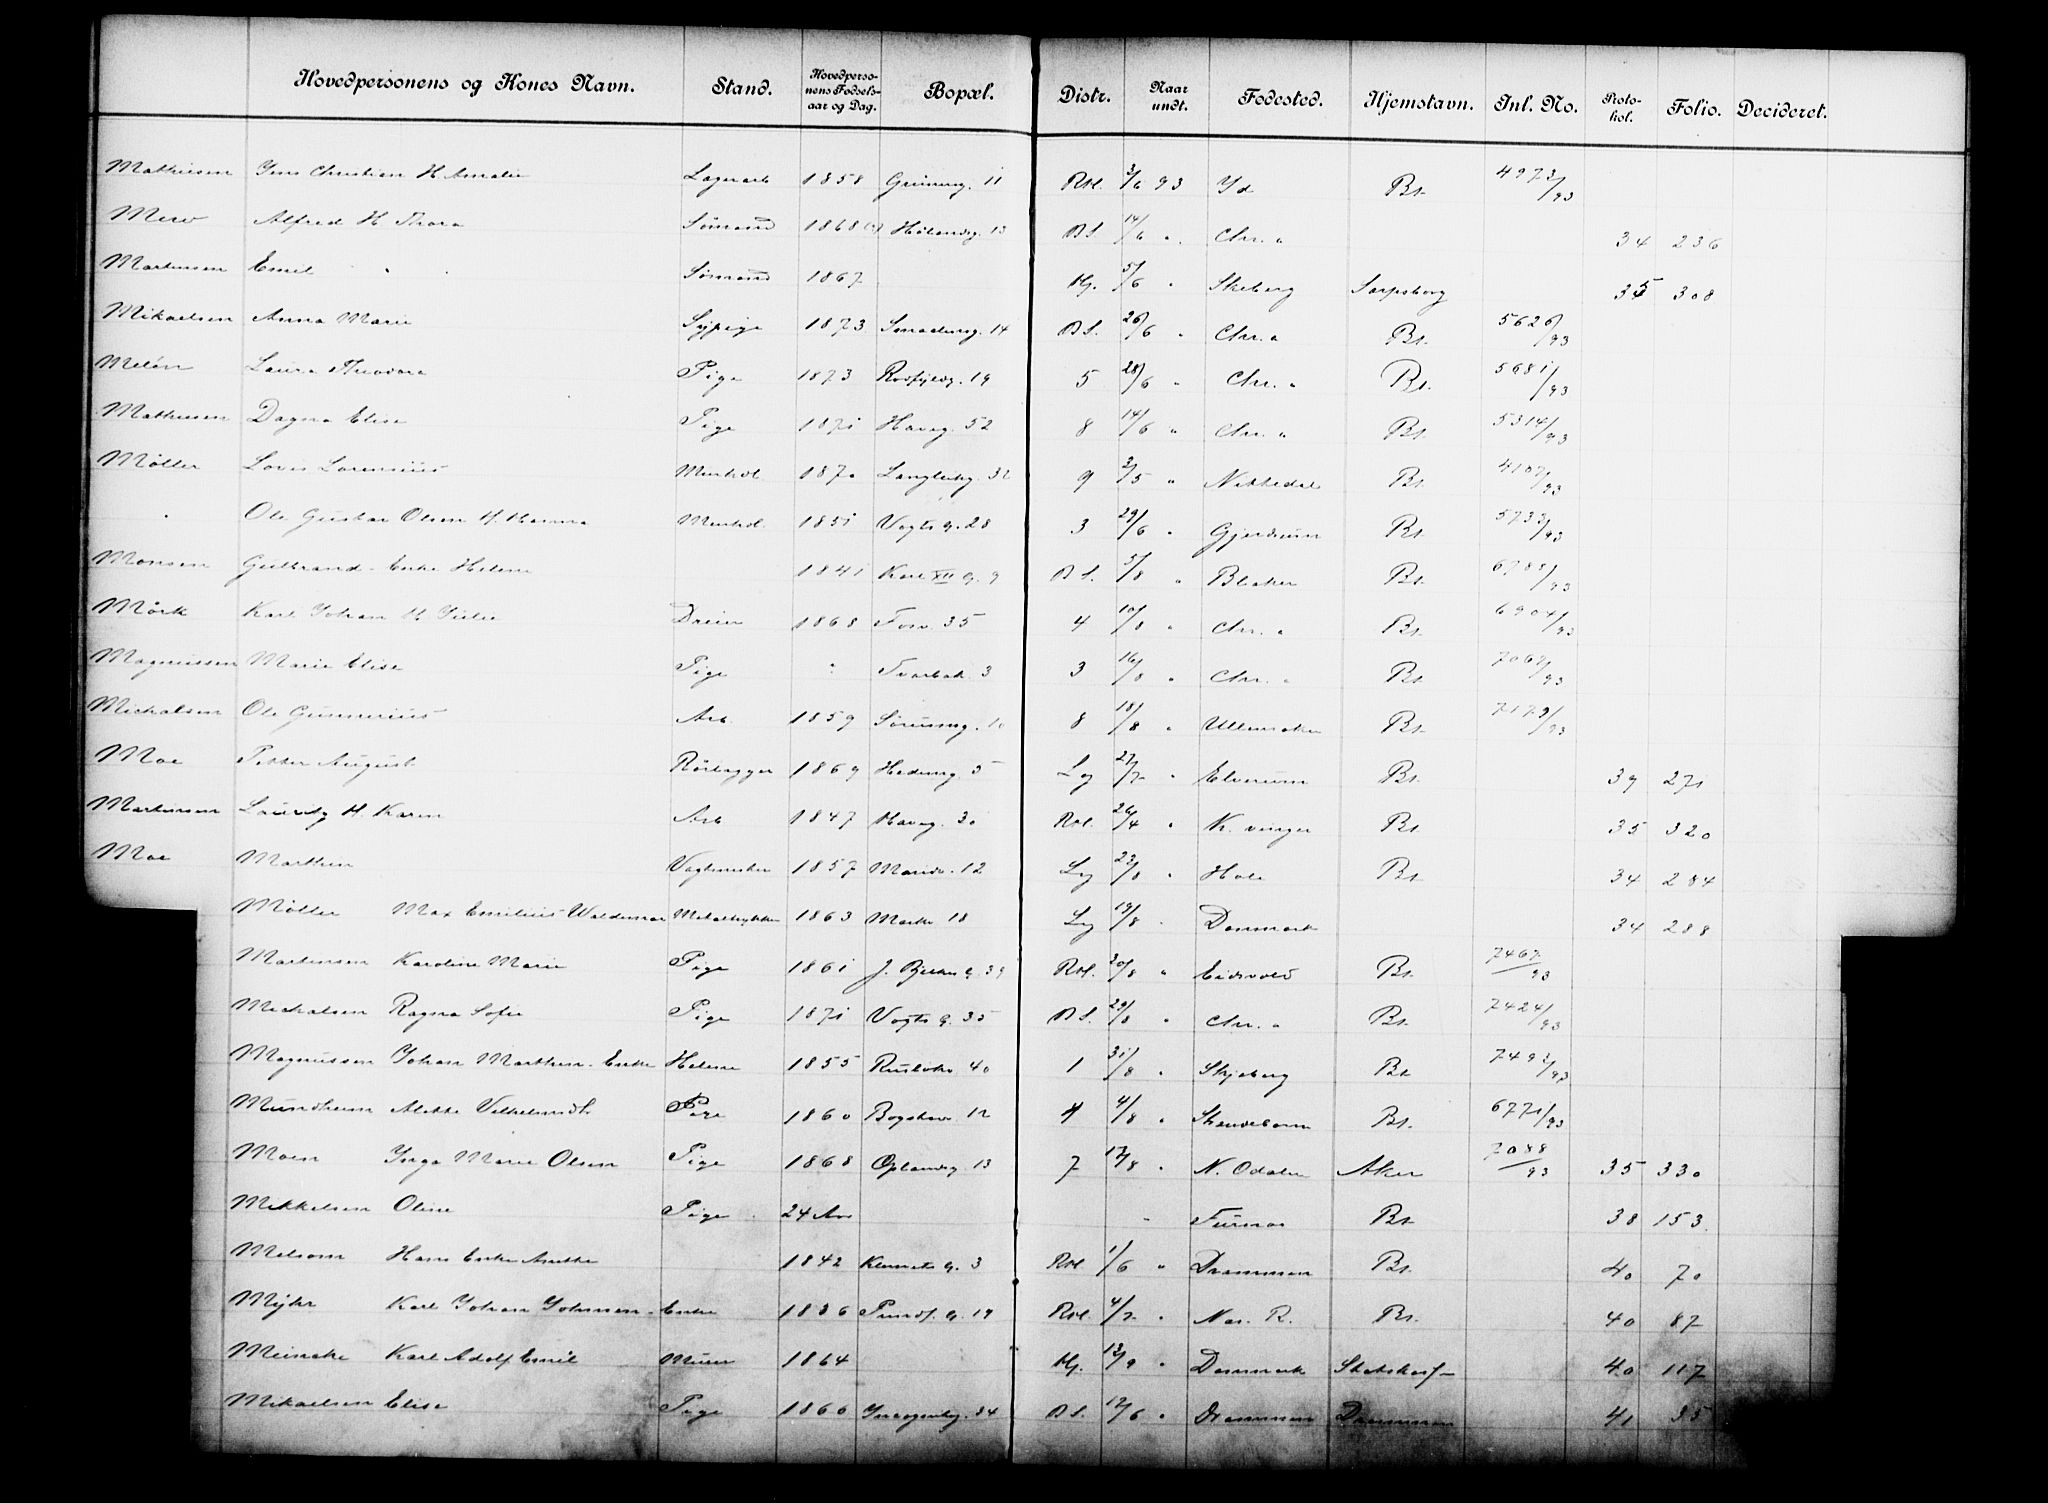 Hovedpersonens og Kones Navn. Stand. Hovedpersonens Fødselsaar og Dag. Bopæl. Distr. Naar undt. Fødested. Hjemstavn. Inl. No. Protokol. Folio. Decideret.
Mathiesen Jens Christian H. Amalie Lagerarb 1858 11 Rol. 3/6 93 Id Bt. 4973/93
Alfred H. Thora Sømand 1868 13 B S. 14/6 " Chr.a 34 236
Martinsen Emil Sømand 1867 Hj. 5/6 " Skeberg Sarpsborg 35 308
Mikaelsen Anna Marie Sypige 1873 14 B S. 26/6 " Chr.a Bt. 5626/93
Laura Theodora Pige 1873 19 5 28/6 " Chr.a Bt. 5681/93
Mathiesen Dagna Elise Pige 1871 Haveg. 52 8 14/6 " Chr.a Bt. 5314/93
Møller Lovis Lorensius 1870 Langleikg. 32 9 2/5 " Nittedal Bt. 4107/93
" Ole Gustav Olsen H. Hanna 1851 Vogts g. 28 3 29/6 " Gjerdrum Bt. 5733/93
Monsen Gulbrand - Enke Helene 1841 Karl XII G. 9 B S. 5/8 " Blaker Bt.
Mörk Karl Johan H. Julie Dreier 1868 Fosv. 35 4 10/8 " Chr.a Bt. 6904/93
Magnussen Marie Elise Pige " Tvorbak. 3 3 16/8 " Chr.a Bt. 7067/93
Michalsen Ole Gunnerius Arb. 1859 Sörumsg. 10 8 18/8 " Ullensaker Bt. 7179/93
Moe Petter August Rörlægger 1869 Hedemg. 5 Lg 27/7 " Elverum Bt. 39 271
Martinsen Lauritz H. Karen Arb 1847 Haveg. 30 Rol. 26/4 " K. vinger Bt. 35 320
Moe Marthin Vagtmester 1857 Maridv. 12 Lg 23/8 " Hole Bt. 34 284
Møller Max Emilius Waldemar Metaltrykker 1863 Markv 18 Lg 19/8 " Danmark 34 288
Martinsen Karoline Marie Pige 1861 J. Bjelkes G. 39 Rol. 30/8 " Eidsvold Bt. 7467/93
Michalsen Ragna Sofie Pige 1871 Vogts G. 35 B S. 29/8 " Chr.a Bt. 7424/93
Magnussen Johan Marthin - Enke Helene 1855 Rusløkv 40 1 31/8 " Skjeberg Bt 7492/93
Mundheim Alette Vilhelmine Pige 1860 Bogstadv 12 4 4/8 " Bt. 6771/93
Moen Inga Marie Olsen Pige 1868 Oplandsg. 13 7 17/8 " N. Odalen Aker 7088/93 35 330
Mikkelsen Oline Pige 24 Aar " Furnes Bt 38 153.
Melsom Hans Enke Anette 1842 3 Rol. 1/6 " Drammen Bt. 40 70
Myhr Karl Johan Johnsen - Enke 1836 19 Rol. 4/7 " Nes. R. Bt. 40 87
Meincke Karl Adolf Emil Murer 1864 Hj. 13/9 " Danmark 40 117
Mikaelsen Elise Pige 1860 34 B S. 12/6 " Drammen Drammen 41 35